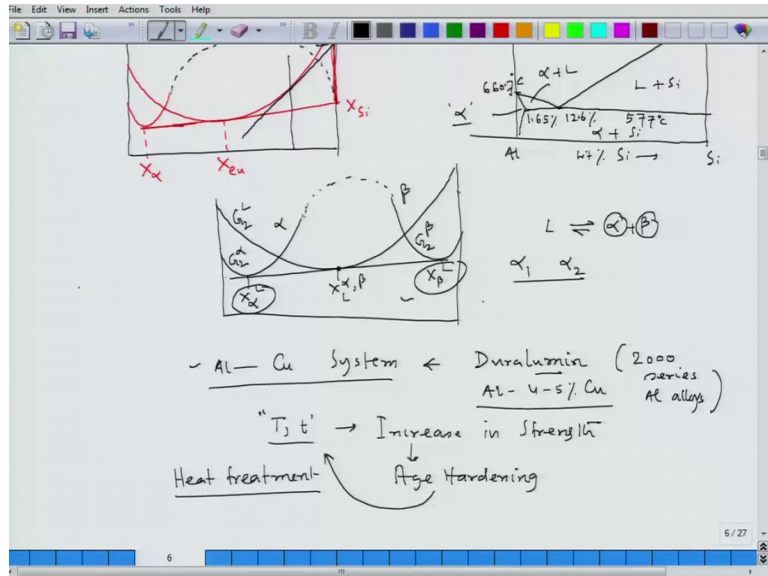 File Edit View Insert Actions Tools Help
B I
X_Si
X_α
X_eu
660.3°C
α+L
L + Si
'α'
1.65% 12.6% 577°C
α + Si
Al wt % Si → Si
G_2^L α β
G_2^α G_2^β
X_α^L X_L^{α,β} X_β^L
L ⇌ α+β
α_1 α_2
Al — Cu System ← Duralumin (2000 series Al alloys)
Al- 4-5% Cu
"T, t" → Increase in Strength
Heat treatment Age Hardening
6 / 27
6